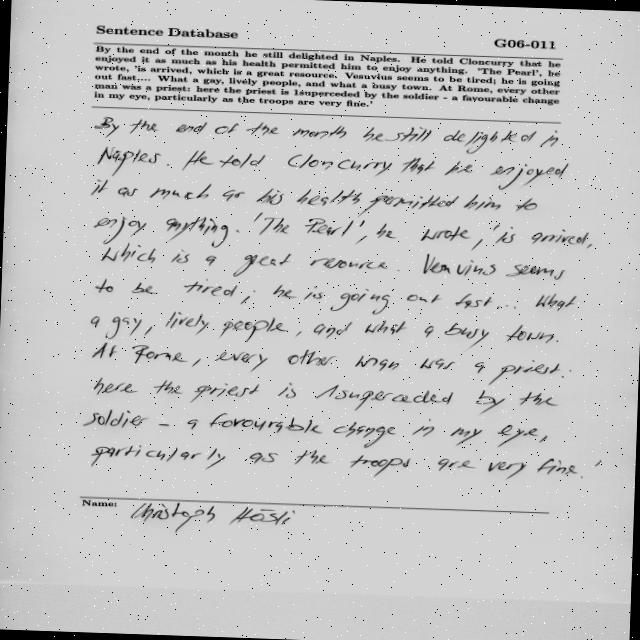 Sentence Database G06-011
By the end of the month he still delighted in Naples. He told Cloncurry that he
enjoyed it as much as his health permitted him to enjoy anything. 'The Pearl', he
wrote, 'is arrived, which is a great resource. Vesuvius seems to be tired; he is going
out fast,... What a gay, lively people, and what a busy town. At Rome, every other
man was a priest: here the priest is 1superceded by the soldier - a favourable change
in my eye, particularly as the troops are very fine.'
By the end of the month he still delighted in
Naples. He told Cloncurry that he enjoyed
it as much as his health permitted him to
enjoy anything. 'The Pearl', he wrote, 'is arrived,
which is a great resource. Vesuvius seems
to be tired; he is going out fast... What
a gay, lively people, and what a busy town.
At Rome, every other man was a priest:
here the priest is 1superceded by the
soldier - a favourable change in my eye,
particularly as the troops are very fine.'
Name: Christoph Hösli